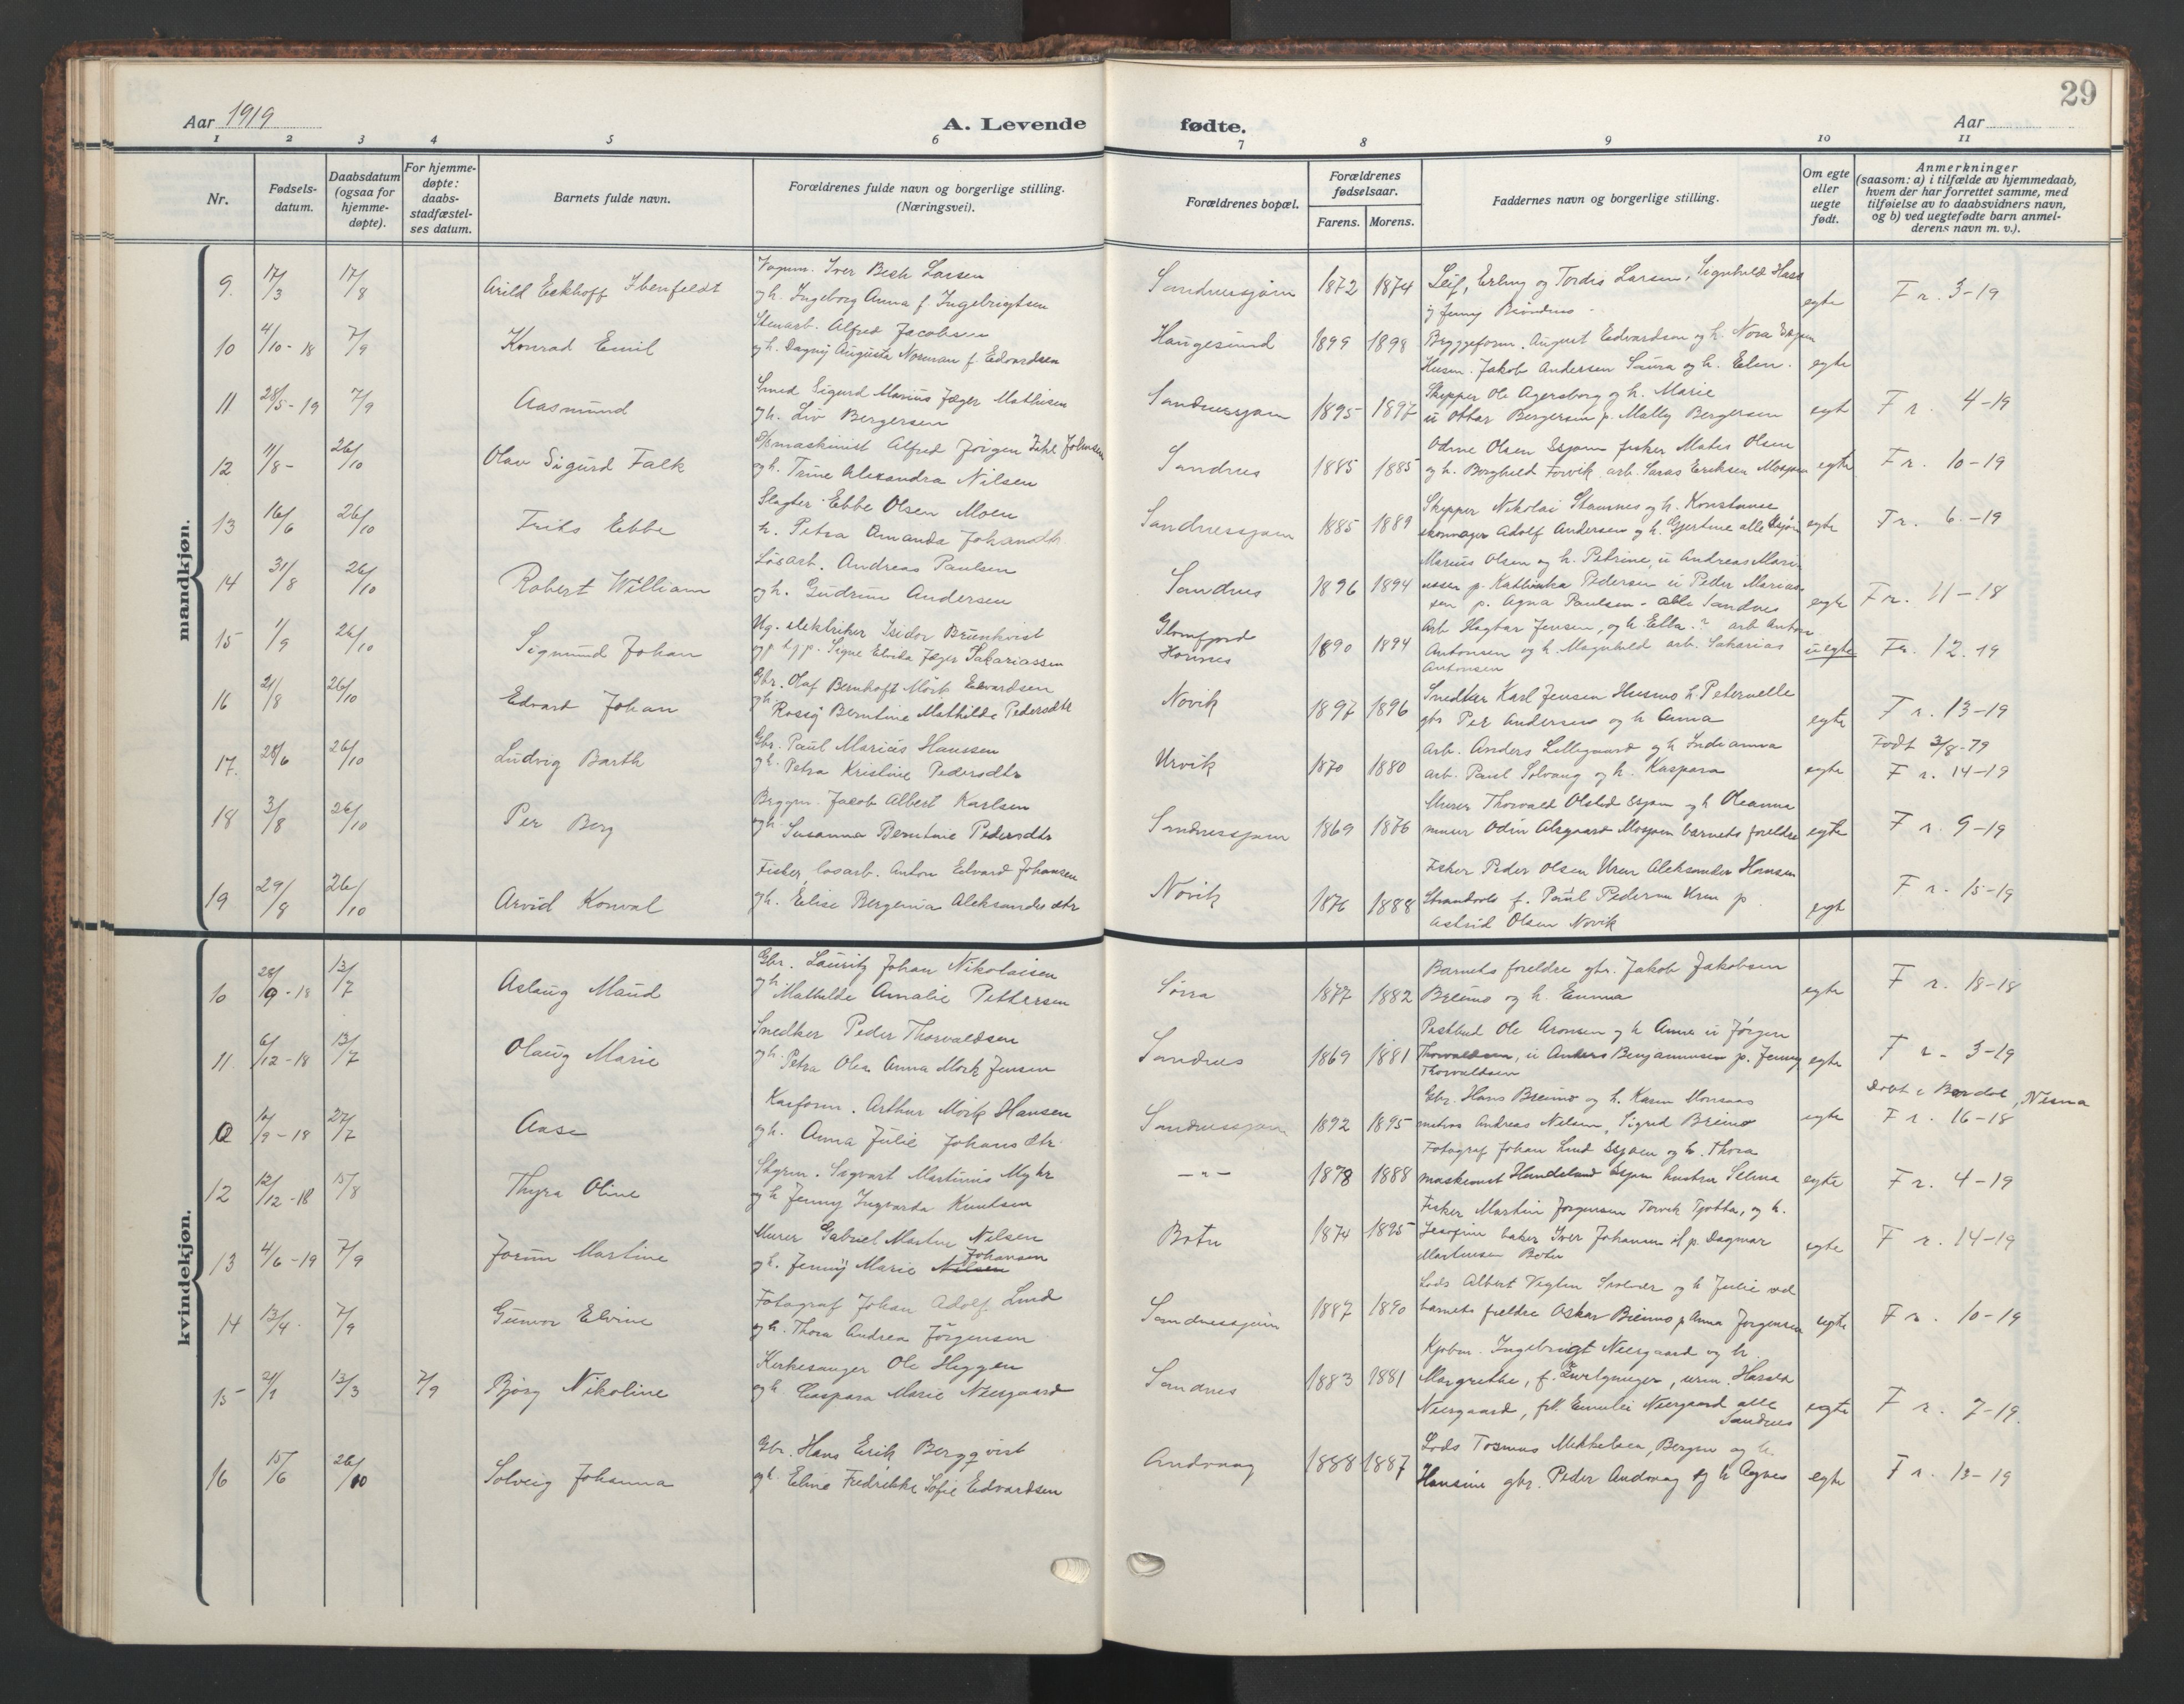 29
Aar 1919
A. Levende fødte.
Aar
1 2 3 4 5 6 7 8 9 10 11
Nr.
Fødsels-
datum.
Daabsdatum
(ogsaa for
hjemme-
døpte).
For hjemme-
døpte:
daabs-
stadfæstel-
ses datum.
Barnets fulde navn.
Forældrenes fulde navn og borgerlige stilling.
(Næringsvei).
Forældrenes bopæl.
Forældrenes
fødselsaar.
Farens. Morens.
Faddernes navn og borgerlige stilling.
Om egte
eller
uegte
født.
Anmerkninger
(saasom: a) i tilfælde av hjemmedaab,
hvem der har forrettet samme, med
tilføielse av to daabsvidners navn,
og b) ved uegtefødte barn anmel-
derens navn m. v.).
mandkjøn.
9. 17/3 17/8 Arild Eckhoff Ibenfeldt
Iver Bech Larsen
og h. Ingeborg Anna f. Ingebrigtsen
Sandnessjøen 1872 1874
Leif, Erling og Tordis Larsen, Signhild Hass
og Jenny
egte F r. 3-19
10 4/10-18 7/9 Konrad Emil
Stenarb. Alfred Jacobsen
og h. Dagny Augusta Norman f. Edvardsen
Haugesund 1899 1898
Bryggeform. August Edvardsen og h. Nora
Husm. Jakob Andersen Saura og h. Elen.
egte
11 28/5-19 7/9 Aasmund
Smed Sigurd Marius Jæger Mathisen
og h. Liv Bergersen
Sandnessjøen 1895 1897
Skipper Ole Agersborg og h. Marie
u Ottar Bergersen p. Mally Bergersen
egt F r. 4-19
12 11/8- 26/10 Olav Sigurd Falk
D/Smaskinist Alfred Jørgen Johnsen
og h. Trine Alexandra Nilsen
Sandnes 1885 1885
Odine Olsen Ssjøen fisker Mates Olsen
og h. Borghild Forvik arb. Eriksen Mosjøen
egte F r. 10-19
13 16/6 26/10 Frits Ebbe
Slagter Ebbe Olsen Moen
h. Petra Amanda Johansdtr.
Sandnessjøen 1885 1889
Skipper Nikolai Stamnes og h. Konstanse
skomager Adolf Andersen og h. Gjertine alle Ssjøen
egte F r. 6.-19
14 31/8 26/10 Robert William
Løsarb. Andreas Paulsen
og h. Gudrun Andersen
Sandnes 1896 1894
Marius Olsen og h. Petrine, u Andreas Mari-
ussen p. Kathinka Pedersen u Peder Marius-
sen p. Agna Paulsen - alle Sandnes
egte F r. 11-18
15 1/9 26/10 Sigmund Johan
Ug. elektriker Isidor Brunkvist
og p. Signe Elvida Jæger Sakariassen
Glomfjord
Hornes
1890 1894
Arb Hagbar Jensen, og h. Ella.? arb Anton
Antonsen og h. Magnhild arb. Sakarias
Antonsen
uegte F r. 12.19
16 21/8 26/10 Edvard Johan
Gbr. Olaf Bernhoft Mörk Edvardsen
og h Rossy Berntine Mathilde Pedersdtr
Novik 1897 1896
Snedker Karl Jensen Husmo h. Peternelle
gbr Per Andersen og h Anna
egte F r. 13-19
17. 28/6 26/10 Ludvig Barth
Gbr. Paul Marius Hanssen
og h. Petra Kristine Pedersdtr
Urvik 1870 1880
Arb. Anders Lillegaard og h Indianna
arb. Paul Solvang og h. Kaspara
egte
Født 3/8-79
F r. 14-19
18 3/8 26/10 Per Berg
Byggm. Jacob Albert Karlsen
og h. Susanna Berntine Pedersdtr
Sandnessjøen 1869 1876
Murer Thorvald Olsted Ssjøen og h Oleanna
murer Odin Alsgaard Mosjøen barnets foreldre
egte F r. 9-19
19 29/8 26/10 Arvid Konval
Fisker, løsarb. Anton Edvard Johansen
og h. Elise Bergenia Aleksandersdtr
Novik 1876 1888
Fisker Peder Olsen Uren Aleksander Hansen
f. Paul Pedersen Uren p.
Astrid Olsen Novik
egt F r. 15-19
kvindekjøn.
10 28/9-18 13/7 Aslaug Maud
Gbr. Lauritz Johan Nikolaisen
og h. Mathilde Amalie Pettersen
Sørra 1877 1882
Barnets foreldre gbr. Jakob Jakobsen
Breimo og h. Emma
egte F r. 18-18
11 6/12-18 13/7 Olaug Marie
Snedker Peder Thorvaldsen
og h. Petra Olea Anna Mörk Jensen
Sandnes 1869 1881
Postbud Ole Aronsen og h Anna u Jörgen
Thorvaldsen, u Anders Benjaminsen p. Jenny
Thorvaldsen
egte F r. 3-19
a 10/9-18 27/7 Aase
Arthur Mörk Hansen
og h. Anna Julie Johansdtr.
Sandnessjøen 1892 1895
Gbr. Hans Breimo og h. Karen Monsaas
Andreas Nilsen, Sigrid Breimo
egte
Døbt i Bardal, Nesna
F r. 16-18
12 12/12-18 15/8 Thyra Oline
Styrm. Sigvart Martinius Myhr
og h Jenny Ingvarda Knutsen
-"- 1878 1888
Fotograf Johan Lund Ssjøen og h. Thora
maskinist Hundeland Ssjøen hustru Selma
egte F r. 4-19
13 4/6-19 7/9 Jorun Martine
Murer Gabriel Martin Nilsen
og h. Jenny Marie Nilsen Johansen
Botn 1874 1895
Fisker Martin Jørgensen Torvik Tjøtta, og h.
Josefine baker Iver Johansen og p. Dagmar
Martinsen Botn
egte F r. 14-19
14 13/4 7/9 Gunvor Elvine
Fotograf Johan Adolf Lund
og h. Thora Andrea Jörgensen
Sandnessjøen 1887 1890
Lods Albert Veglen Svolvær og h Julie ved
barnets foreldre Oskar Breimo p Anna Jørgensen
egte F r. 10-19
15 21/1 13/3 7/9 Bjørg Nikoline
Kirkesanger Ole Heggen
og h. Caspara Marie Neergaard
Sandnes 1883 1881
Kjøbm. Ingebrigt Neergaard og h.
Margrethe, f. urm. Harald
Neergaard, frk. Emilie Neergaard alle
Sandnes
egte F r. 7-19.
16 15/6 26/10 Solveig Johanna
Gbr. Hans Erik Bergqvist
og h. Eline Fredrikke Sofie Edvardsen
Andvaag 1888 1887
Lods Tosmus Mikkelsen, Bergen og h.
Hansine gbr. Peder Andvaag og h Agnes
egte F r. 12-19